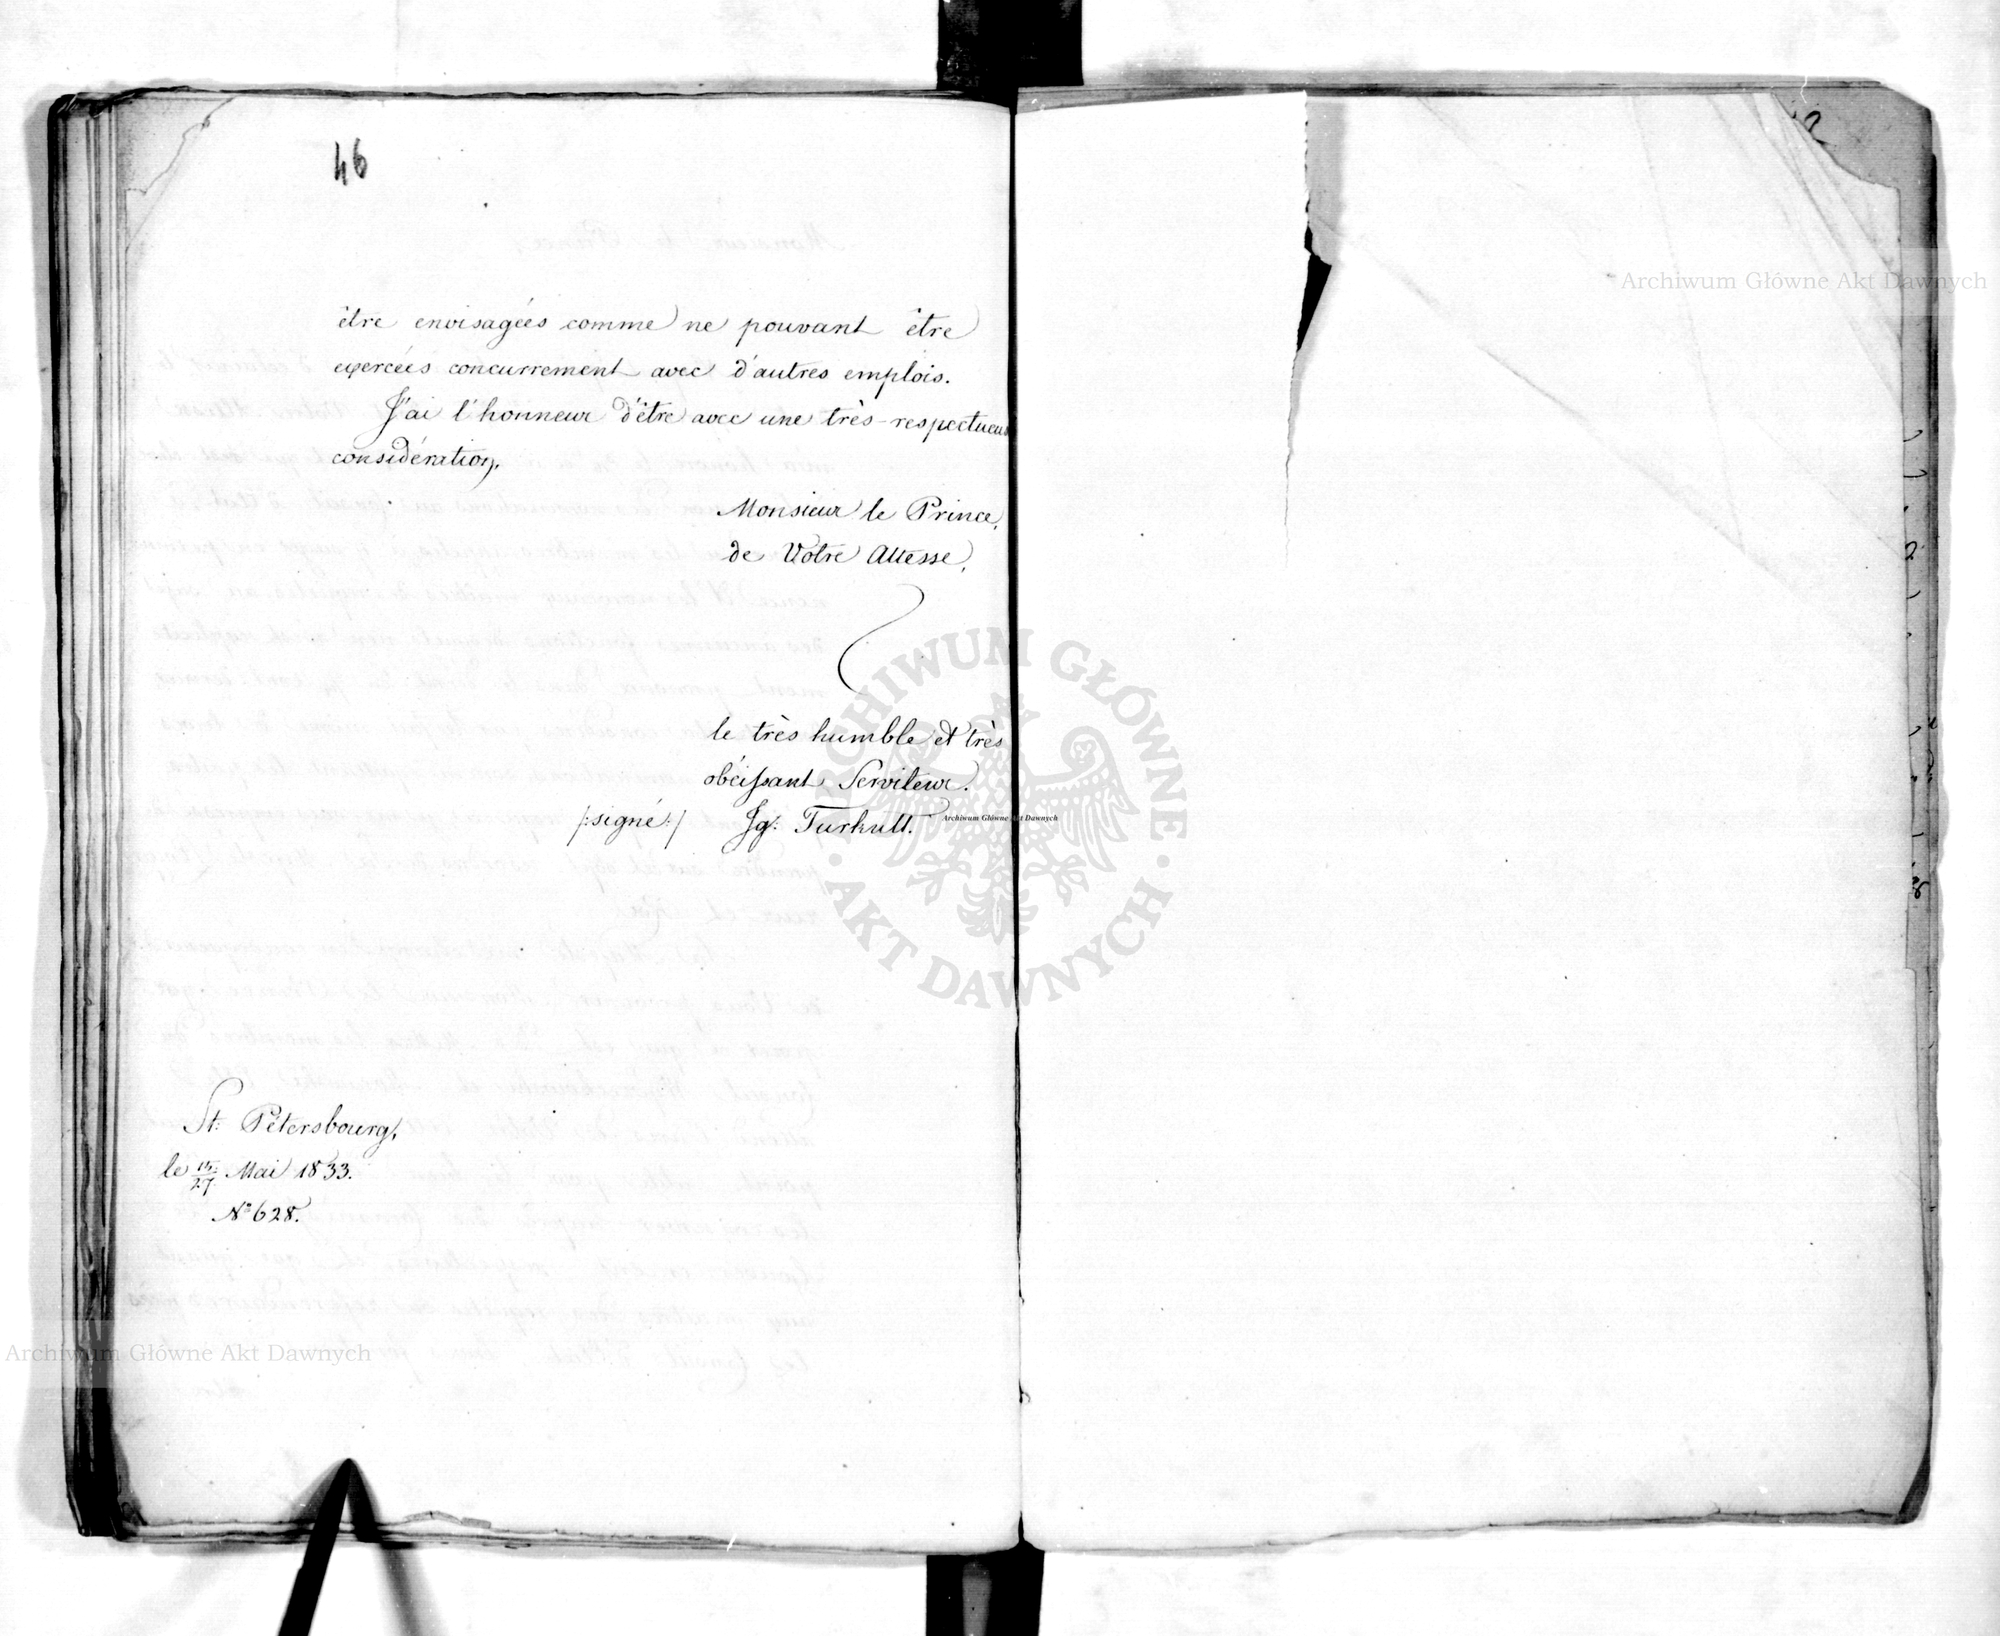 46
être envisagées comme ne pouvant être
exercées concurrement avec d'autres emplois.
J'ai l'honneur d'être avec une très-respectueuse
considération,
Monsieur le Prince,
de Votre Altesse,
le très humble et très
obéissant Serviteur.
/:signé:/ Ig: Turkull.
St: Pétersbourg,
le 15/27 Mai 1833.
N° 628.
Archiwum Główne Akt Dawnych
Archiwum Główne Akt Dawnych
ARCHIWUM GŁÓWNE AKT DAWNYCH
Archiwum Główne Akt Dawnych